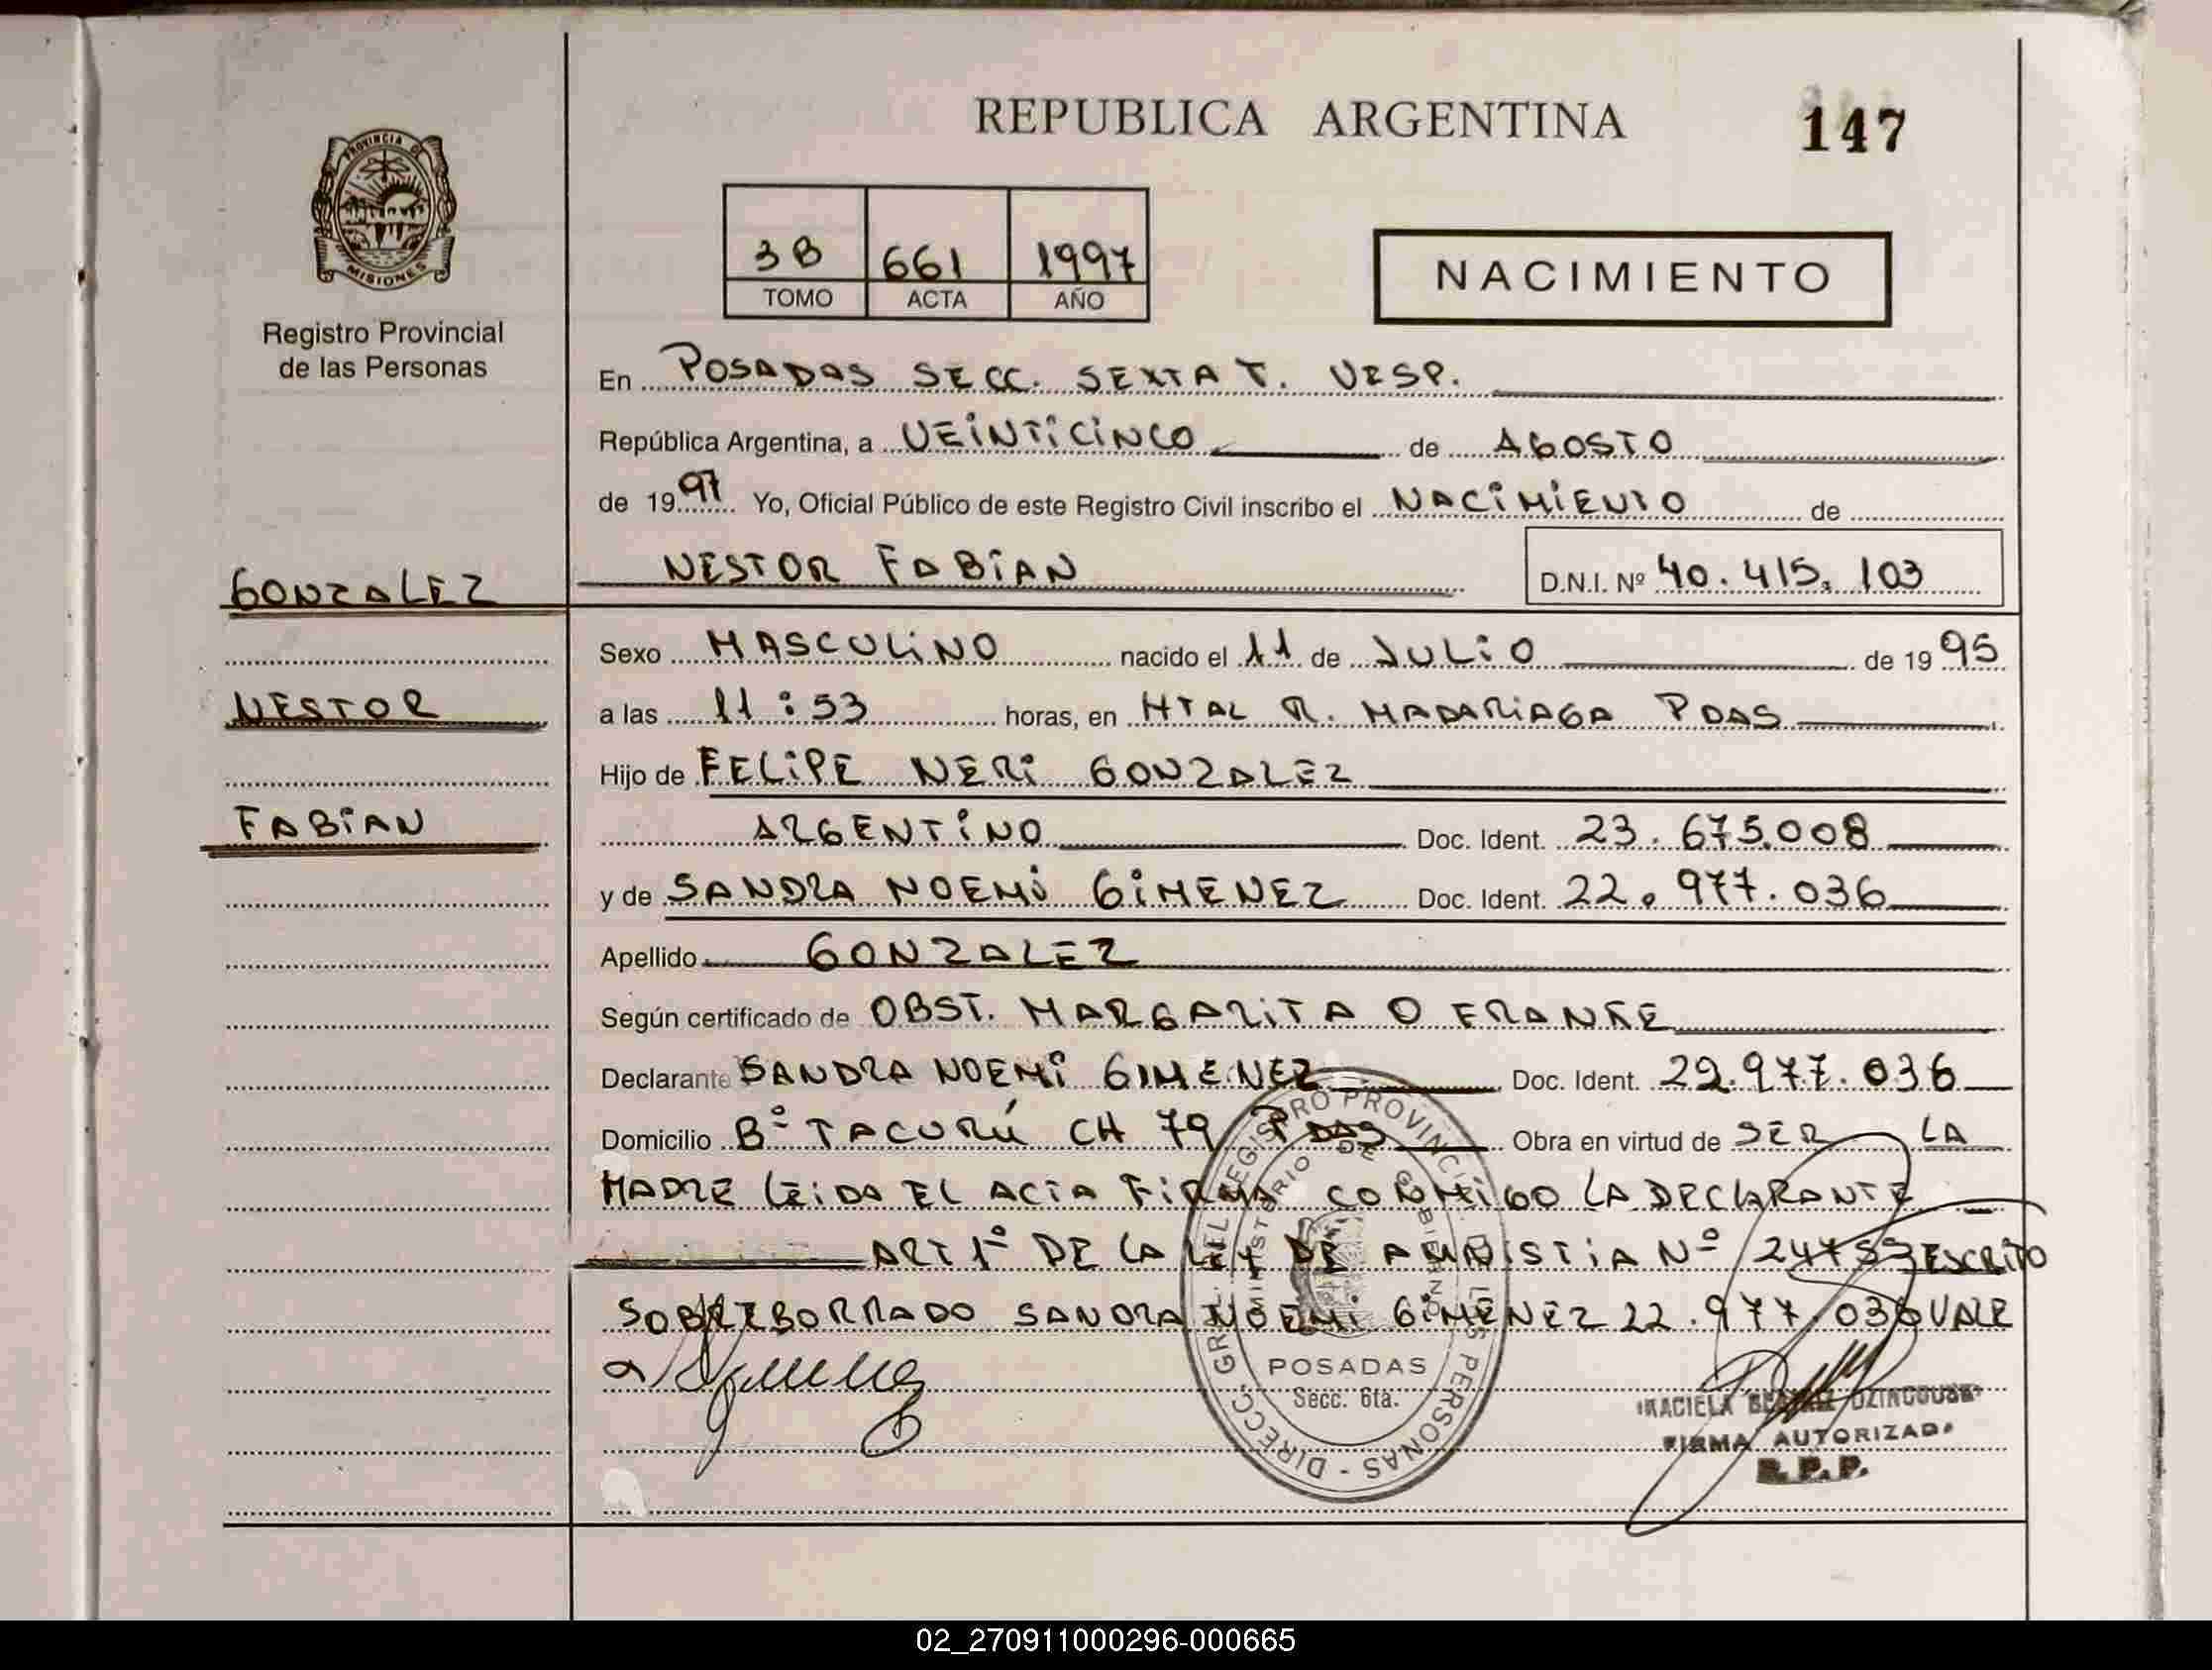 REPUBLICA ARGENTINA
147
PROVINCIA D
MISIONES
Registro Provincial
de las Personas
3B 661 1997
TOMO ACTA AÑO
NACIMIENTO
En POSADAS SECC. SEXTA T. VESP.
República Argentina, a VEINTICINCO de AGOSTO
de 1997 Yo, Oficial Público de este Registro Civil inscribo el NACIMIENTO de
NESTOR FABIAN
D.N.I. Nº 40.415.103
GONZALEZ
NESTOR
FABIAN
Sexo MASCULINO nacido el 11 de JULIO de 1995
a las 11:53 horas, en HTAL R. MADARIAGA PDAS
Hijo de FELIPE NERI GONZALEZ
ARGENTINO Doc. Ident. 23.675.008
y de SANDRA NOEMI GIMENEZ Doc. Ident. 22.977.036
Apellido GONZALEZ
Según certificado de OBST. MARGARITA O FRANKE
Declarante SANDRA NOEMI GIMENEZ Doc. Ident. 22.977.036
Domicilio Bº TACURÚ CH 79 PDAS Obra en virtud de SER LA
MADRE LEIDA EL ACTA FIRMA CONMIGO LA DECLARANTE
ART 1º DE LA LEY DE AMNISTIA Nº ESCRITO
SOBREBORRADO SANDRA NOEMI GIMENEZ 22.977.036 VALE
DIRECC. GRAL. DEL REGISTRO PROVINCIAL DE LAS PERSONAS
MINISTERIO DE GOBIERNO
POSADAS
Secc. 6ta.
FIRMA AUTORIZADA
R.P.P.
02_270911000296-000665